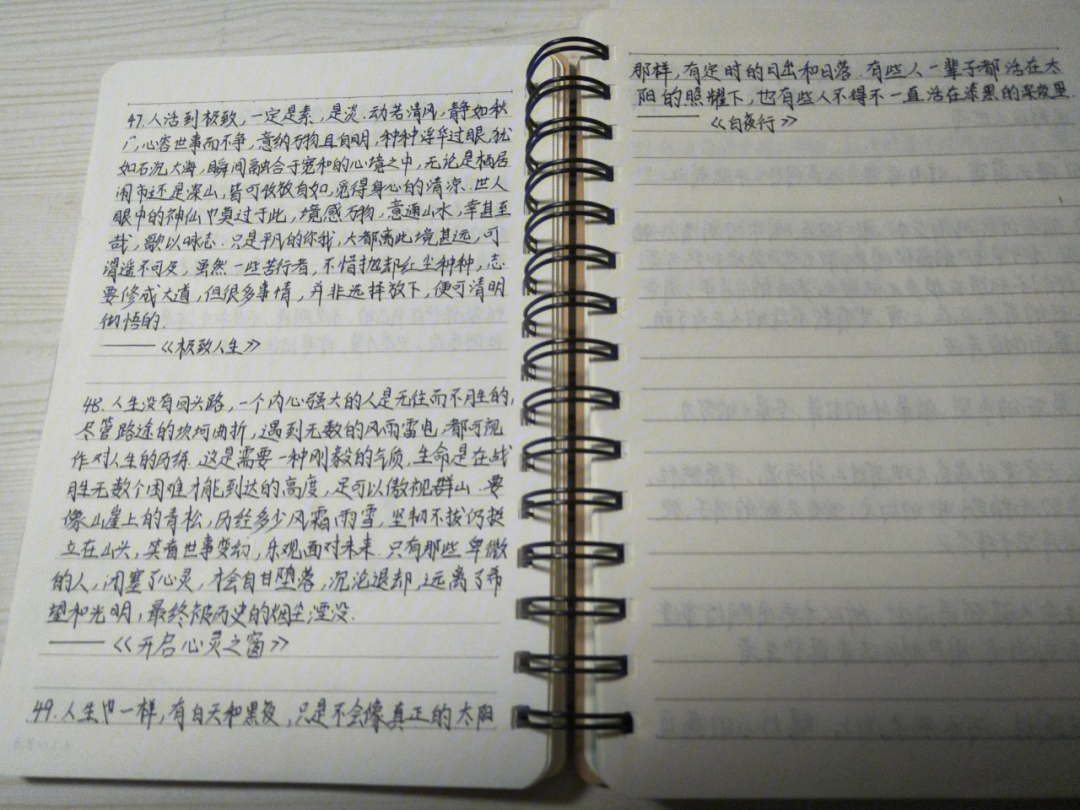 47.人活到极致,一定是素,是淡.动若清风,静如秋
广,心容世事而不争,意纳万物且自明,种种浮华过眼,犹
如石沉大海,瞬间融合于宽和的心境之中,无论是栖居
闹市还是深山,皆可收放自如,觅得身心的清凉.世人
眼中的神仙也莫过于此,境感万物,意通山水,幸甚至
哉,歌以咏志.只是平凡的你我,大都离此境甚远,可
谓遥不可及,虽然一些苦行者,不惜抛却红尘种种,志
要修成大道,但很多事情,并非选择放下,便可清明
彻悟的.
——《极致人生》
48.人生没有回头路,一个内心强大的人是无往而不胜的,
尽管路途的坎坷曲折,遇到无数的风雨雷电,都可视
作对人生的历练.这是需要一种刚毅的气质,生命是在战
胜无数个困难才能到达的高度,足可以傲视群山.要
像山崖上的青松,历经多少风霜雨雪,坚韧不拔仍挺
立在山头,笑看世事变幻,乐观面对未来.只有那些卑微
的人,闭塞了心灵,才会自甘堕落,沉沦退却,远离了希
望和光明,最终被历史的烟尘湮没.
——《开启心灵之窗》
49.人生也一样,有白天和黑夜,只是不会像真正的太阳
那样,有定时的日出和日落.有些人一辈子都活在太
阳的照耀下,也有些人不得不一直活在漆黑的深夜里.
——《白夜行》